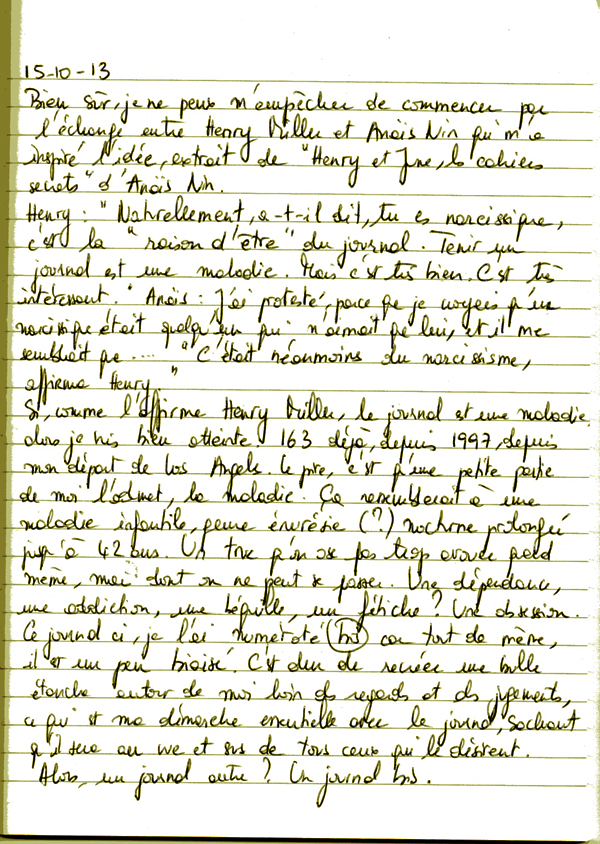 15-10-13
Bien sûr, je ne peux m'empêcher de commencer par
l'échange entre Henry Miller et Anaïs Nin qui m'a
inspiré l'idée, extrait de "Henry et June, les cahiers
secrets" d'Anaïs Nin.
Henry : "Naturellement, a-t-il dit, tu es narcissique,
c'est la "raison d'être" du journal. Tenir un
journal est une maladie. Mais c'est très bien. C'est très
intéressant." Anaïs : J'ai protesté, parce que je croyais qu'un
narcissique était quelqu'un qui n'aimait que lui, et il me
semblait que .... "C'était néanmoins du narcissisme,
affirma Henry."
Si, comme l'affirme Henry Miller, le journal est une maladie,
alors je suis bien atteinte. 163 déjà, depuis 1997, depuis
mon départ de Los Angeles. Le pire, c'est qu'une petite partie
de moi l'admet, la maladie. Ça ressemblerait à une
maladie infantile, genre énurésie (?) nocturne prolongée
jusqu'à 42 ans. Un truc qu'on ose pas trop avouer quand
même, mais dont on ne peut se passer. Une dépendance,
une addiction, une béquille, un fétiche ? Une obsession.
Ce journal ci, je l'ai numéroté bis car tout de même,
il est un peu biaisé. C'est dur de recréer une bulle
étanche autour de moi loin des regards et des jugements,
ce qui est ma démarche essentielle avec le journal, sachant
qu'il sera au vu et su de tous ceux qui le désirent.
Alors, un journal autre ? Un journal bis.